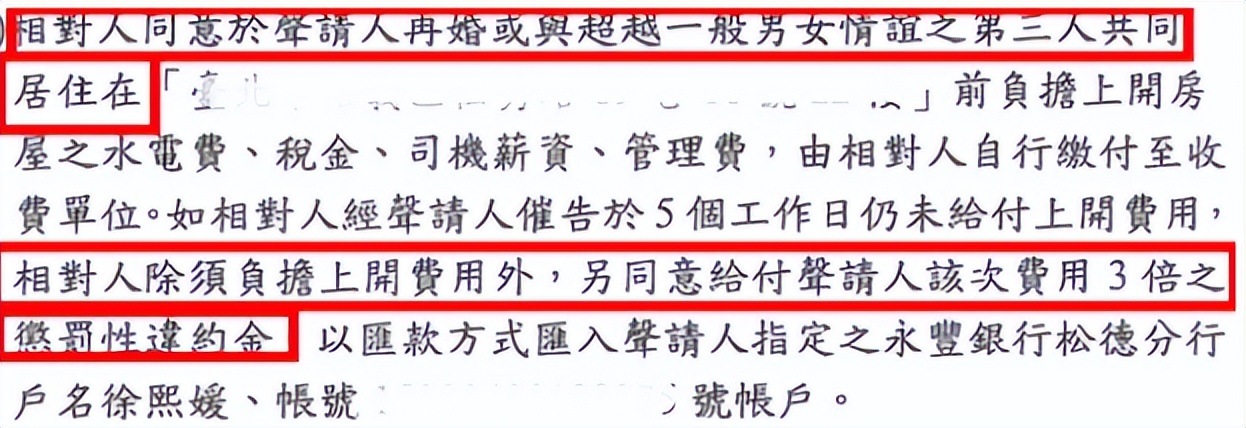 相對人同意於聲請人再婚或與超越一般男女情誼之第三人共同
居住在「臺北」前負擔上開房
屋之水電費、稅金、司機薪資、管理費，由相對人自行繳付至收
費單位。如相對人經聲請人催告於5個工作日仍未給付上開費用，
相對人除須負擔上開費用外，另同意給付聲請人該次費用3倍之
懲罰性違約金 以匯款方式匯入聲請人指定之永豐銀行松德分行
戶名徐熙媛、帳號 號帳戶。